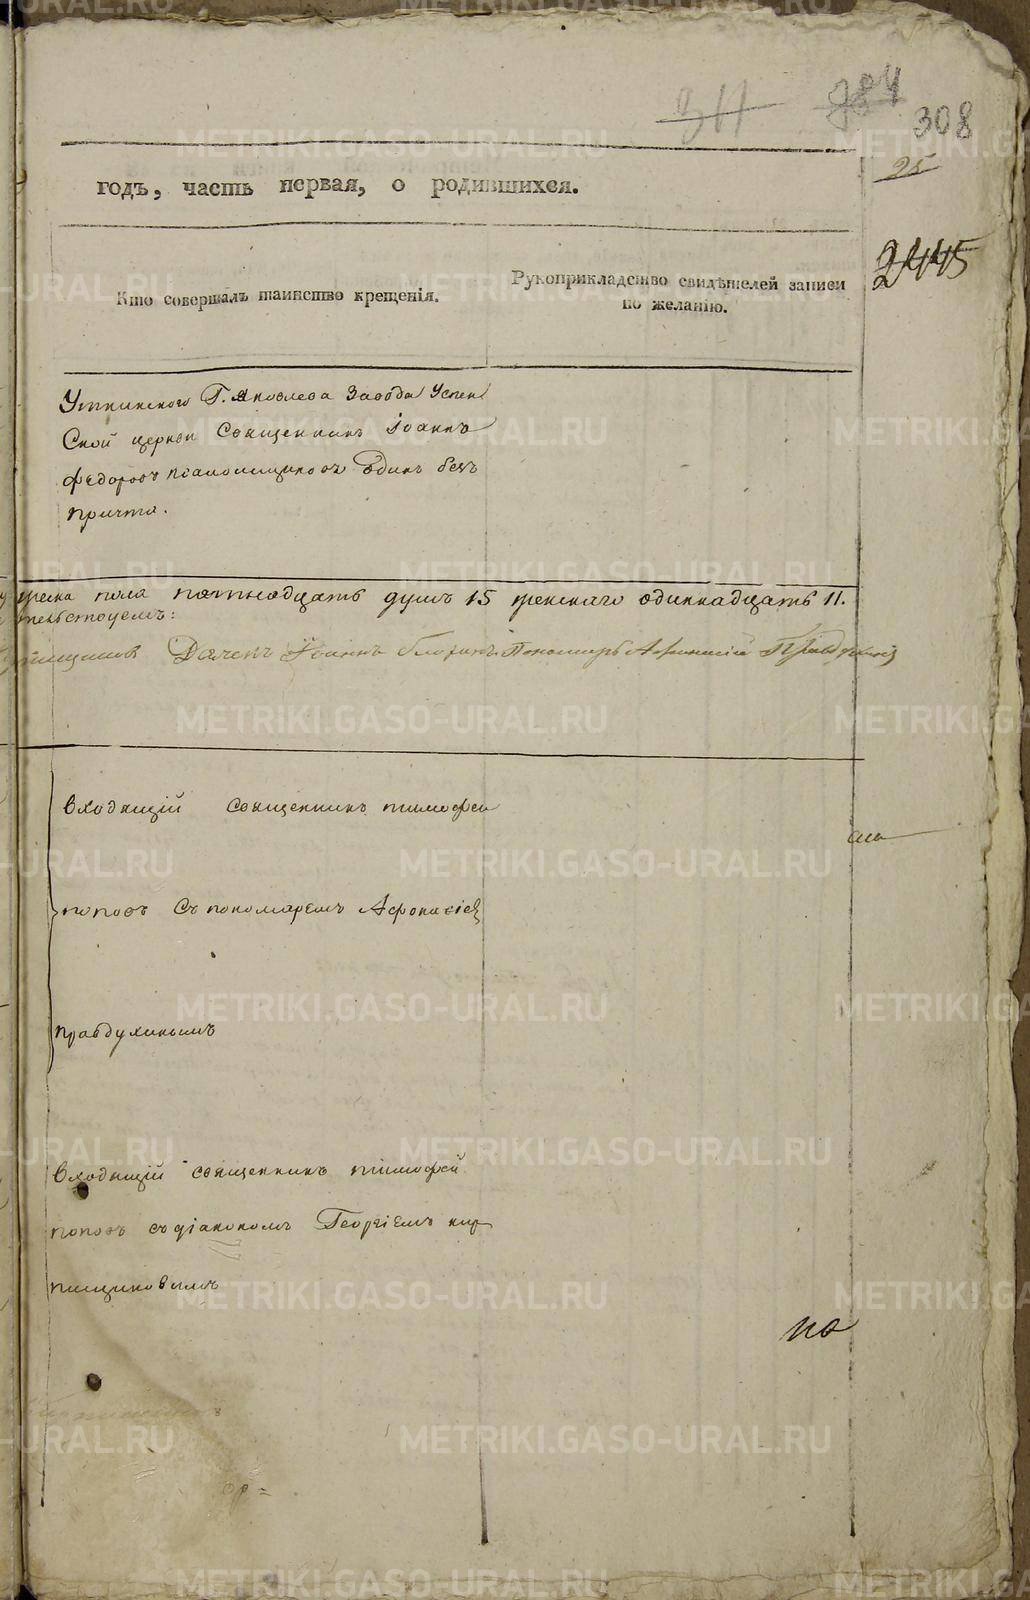 311 384 308
25
годъ, часть первая, о родившихся.
2445
Кто совершалъ таинство крещенія.
Рукоприкладство свидѣтелей записи
по желанію.
Уткинскаго Г. Яковлева Завода Успен
ской церкви Священникъ Іоаннъ
Федоровъ одинъ безъ
причта.
пола пятнадцать душъ 15 женскаго одинадцать 11.
Іоаннъ Пономарь Афанасій Правдухинъ
входящій священникъ тимофеи
поповъ съ пономаремъ Афонасіем
правдухинымъ
входящій священникъ тимофей
поповъ съ діакономъ Георгіемъ кир
пищиковымъ
по
METRIKI.GASO-URAL.RU